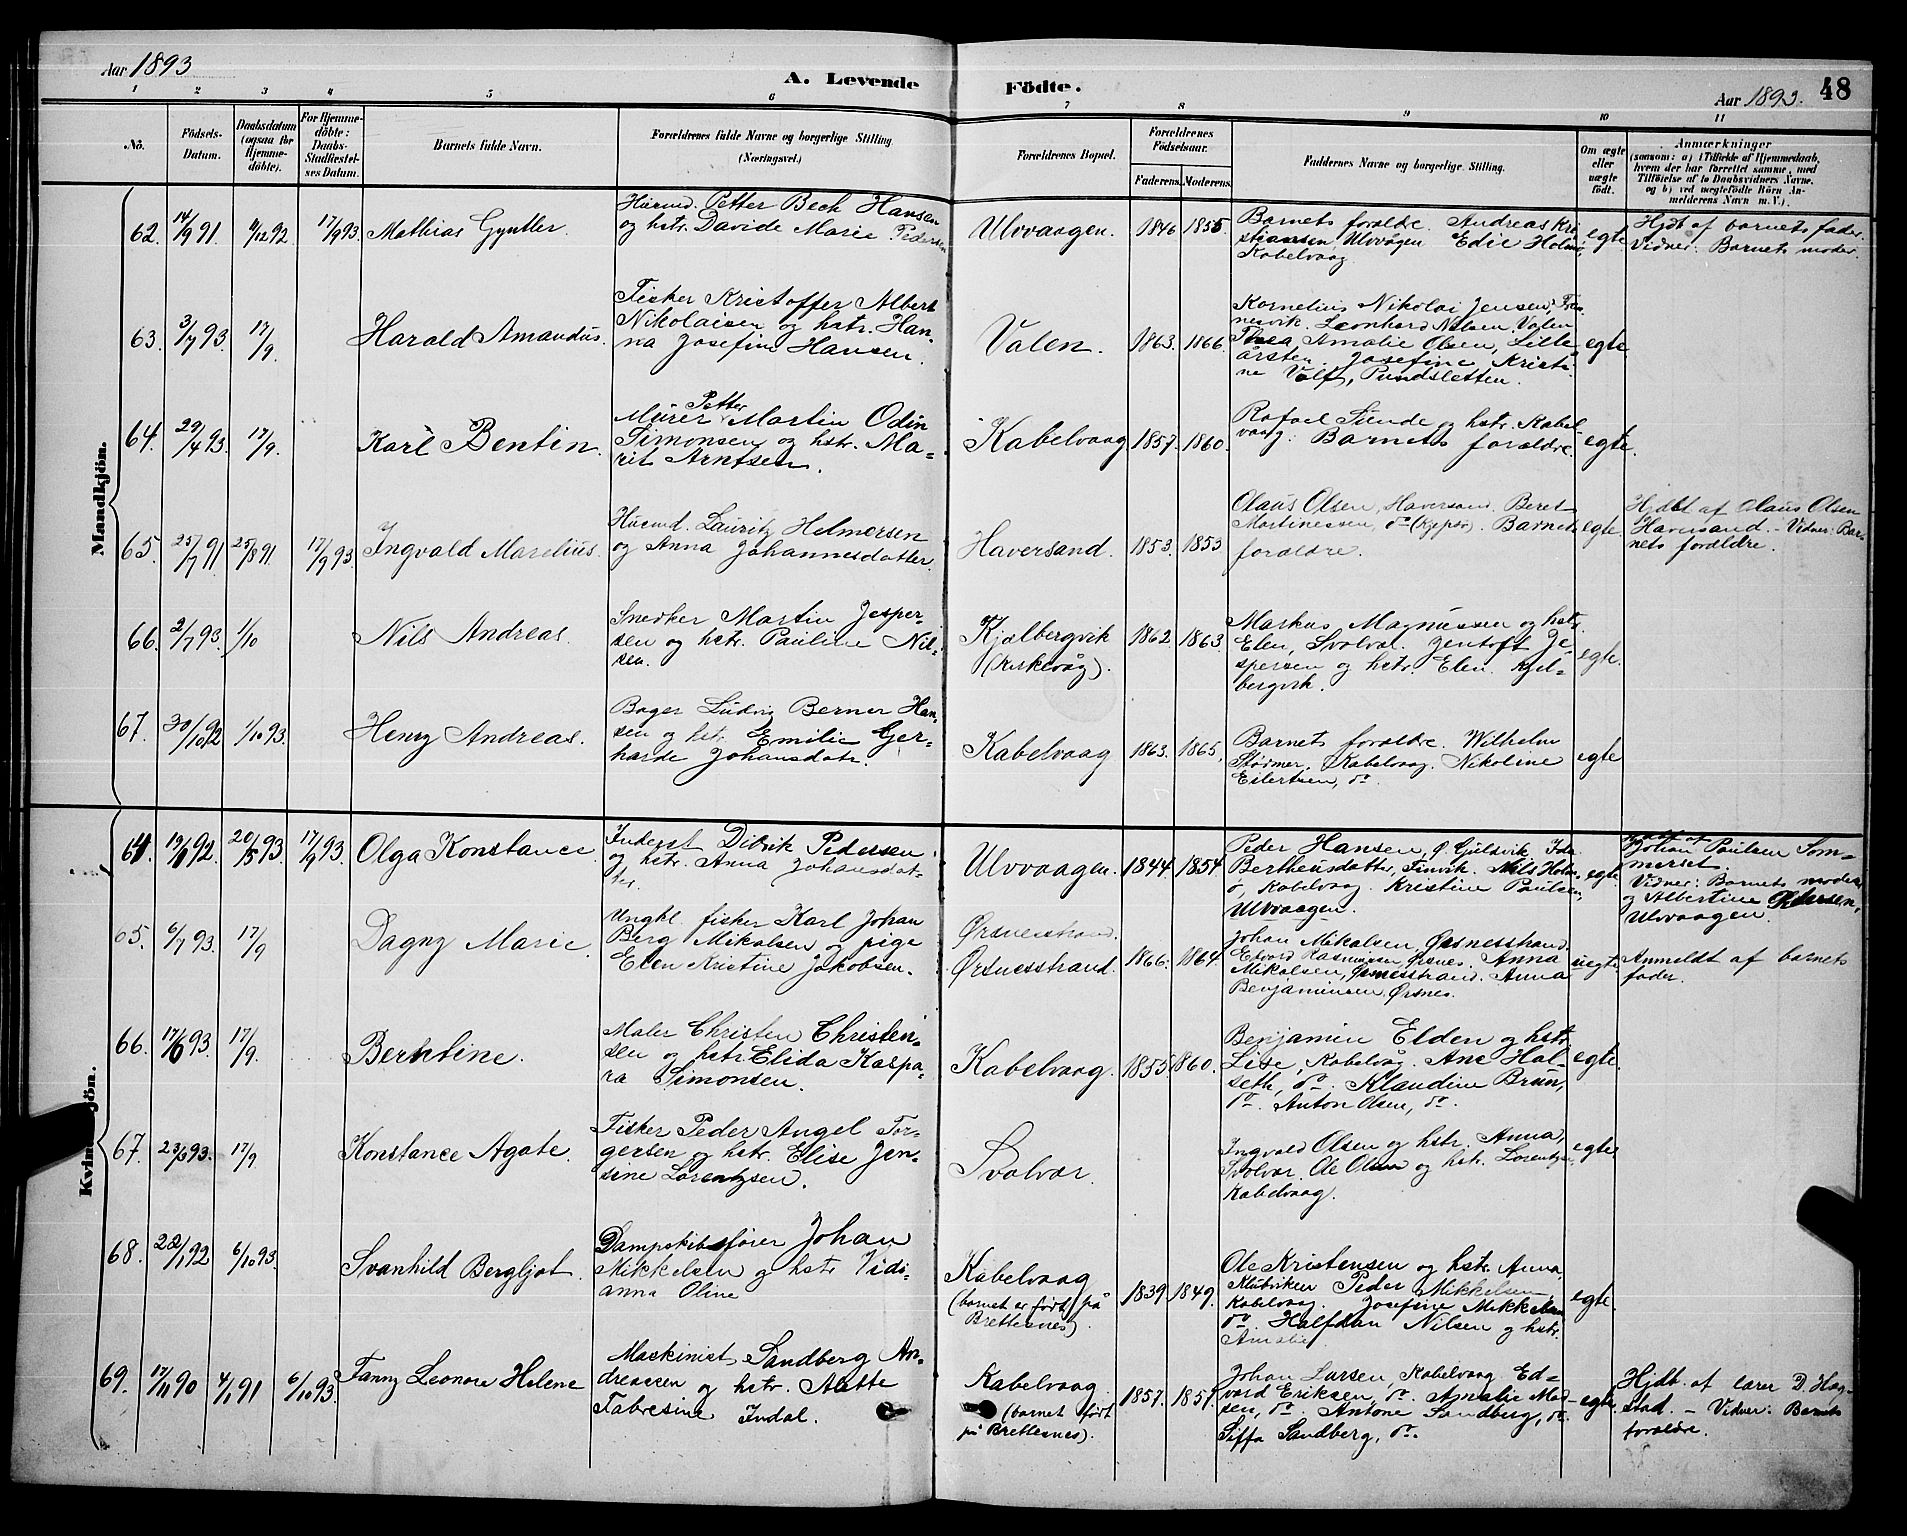 Aar 1893
A. Levende
Födte.
Aar 1893. 48
1 2 3 4 5 6 7 8 9 10 11
No.
Födsels-
Datum.
Daabsdatum
(ogsaa for
Hjemme-
döbte).
For Hjemme-
döbte:
Daabs-
Stadfæstel-
ses Datum.
Barnets fulde Navn.
Forældrenes fulde Navne og borgerlige Stilling
(Næringsvei.)
Forældrenes Bopæl.
Forældrenes
Födselsaar.
Faderens. Moderens.
Faddernes Navne og borgerlige Stilling.
Om ægte
eller
uægte
födt.
Anmærkninger
(saasom: a) i Tilfælde af Hjemmedaab,
hvem der har forrettet samme, med
Tilföielse af to Daabsvidners Navne,
og b) ved uægtefödte Börn An-
melderens Navn m. V.).
Mandkjön.
62. 14/9 91 11/12 92 17/9 93. Mathias Gyntler
Husmd. Petter Bech Hansen
og hstr. Davide Marie Pedersen
Ulvvaagen. 1846 1855
Barnets forældre. Andreas Kri
stiansen Ulvvågen Edie Holmø,
Kabelvaag.
egte
Hjdt af barnets fader.
Vidner: Barnets moder.
63. 3/7 93. 17/9. Harald Amandus.
Fisker Kristoffer Albert
Nikolaisen og hstr. Han-
na Josefine Hansen.
Valen. 1863. 1866.
Kornelius Nikolai Jensen,
nesvik. Leonhard Nilsen Valen
Thea Amalie Olsen, Lille
årsten. Josefine Kristi-
ne Volf, Pundsletten.
egte
64. 29/4 93. 17/9. Karl Bentin.
Petter
Murer Martin Odin
Simonsen og hstr. Ma-
rit Arntsen.
Kabelvaag 1857. 1860.
Rafael Sunde og hstr. Kabel
vaag. Barnets forældre.
egte.
65. 25/7 91 25/8 91 17/9 93 Ingvald Marelius.
Husmd. Lauritz Helmersen
og Anna Johannesdatter.
Haversand. 1853. 1853
Olaus Olsen, Haversand. Beret
Martinessen, do (Kjepsø). Barnets
forældre.
egte.
Hjdbt af Olaus Olsen
Haversand. - Vidner: Bar-
nets forældre.
66. 2/7 93. 1/10 Nils Andreas.
Snedker Martin Jesper-
sen og hstr. Pauline Nil-
sen.
Kjælbergvik
(Kirkevåg).
1862 1863.
Markus Magnussen og hstr.
Elen, Svolvær. Jentoft Je
spersen og hstr. Elen Kjel-
bergvik.
egte.
67. 30/10 92 1/10 93. Henry Andreas.
Bager Ludvig Berner Han-
sen og hstr. Emilie Ger-
harde Johansdatr.
Kabelvaag 1863. 1865,
Barnets forældre. Wilhelm
Stødmer, Kabelvaag. Nikoline
Eilertsen, do.
egte
Kvindekjön.
64. 19/11 92. 20/5 93. 17/9 93. Olga Konstance
Inderst Didrik Pedersen
og hstr. Anna Johansdat-
ter.
Ulvvaagen. 1844. 1854
Peder Hansen, Ø. Guldvik Ida
Bertheusdatter, Finvik. Nils Holm
ø, Kabelvaag. Kristine Paulsen,
Ulvvaagen.
egte.
Hjdt af
Johan Paulsen Som-
merset.
Vidner: Barnets moder
og Albertine Pedersen,
Ulvvaagen.
65. 6/7 93. 17/9 Dagny Marie
Ungkl. fisker Karl Johan
Berg Mikalsen og pige
Elen Kristine Jakobsen.
Ørsnesstrand.
Ørsnesstrand. 1866. 1864.
Johan Mikalsen, Ørsnesstrand.
Edvard Rasmussen Ørsnes. Anna
Mikalsen, Ørsnesstrand. Anna
Benjaminsen Ørsnes.
uegte
Anmeldt af barnets
fader.
66. 17/6 93. 17/9. Berntine.
Maler Christen Christen-
sen og hstr. Elida Kaspa-
ra Simonsen.
Kabelvaag. 1855. 1860.
Benjamin Elden og hstr.
Lise, Kabelvåg. Ane Hal-
seth, do. Klaudine Bruun,
do. Anton Olsen, do.
egte.
67. 23/6 93. 17/9 Konstance Agate.
Fisker Peder Angel Tor-
gersen og hstr. Elise Jen-
sine Lorentzsen.
Svolvær.
Ingvald Olsen og hstr. Anna,
Svolvær. Ole Olsen og hstr. Lorentzn.
Kabelvaag.
egte.
68. 22/1 92 6/10 93. Svanhild Bergljot.
Dampskibsfører Johan
Mikkelsen og hstr Vidi-
anna Oline
Kabelvaag
(barnet er født på
Brettesnes).
1839. 1849.
Ole Kristensen og hstr. Anna,
Klubviken Peder Mikkelsen,
Kabelvaag. Josefine Mikkelsen
do. Halfdan Nilsen og hstr.
Amalie
egte.
69. 17/11 90 4/1 91 6/10 93. Fanny Leonore Helene
Maskinist Sandberg An-
dreassen og hstr. Alette
Fabresine Indal.
Kabelvaag.
(barnet født
på Brettesnes).
1857. 1857.
Johan Larsen, Kabelvaag Ed-
vard Eriksen, do. Amalie Mad-
sen, do. Antone Sandberg, do.
Siffa Sandberg, do.
egte
Hjdt. af lærer D. Høg-
stad. - Vidner: Barnets
forældre.